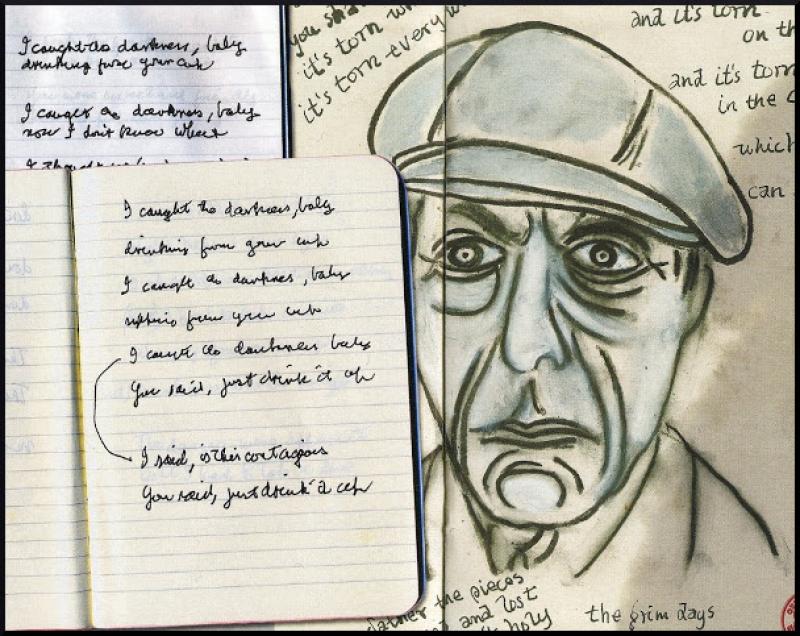 I caught the darkness, baby
drinking from your cup
I caught the darkness, baby
now I don't know what
I caught the darkness, baby
drinking from your cup
I caught the darkness, baby
from your cup
I caught the darkness baby
You said, just drink it up
I said, is this contagious
You said, just drink it up
you
it's torn
it's torn every
and it's torn
on th
and it's torn
in the
which
can
gather the pieces
and lost
holy
the grim days